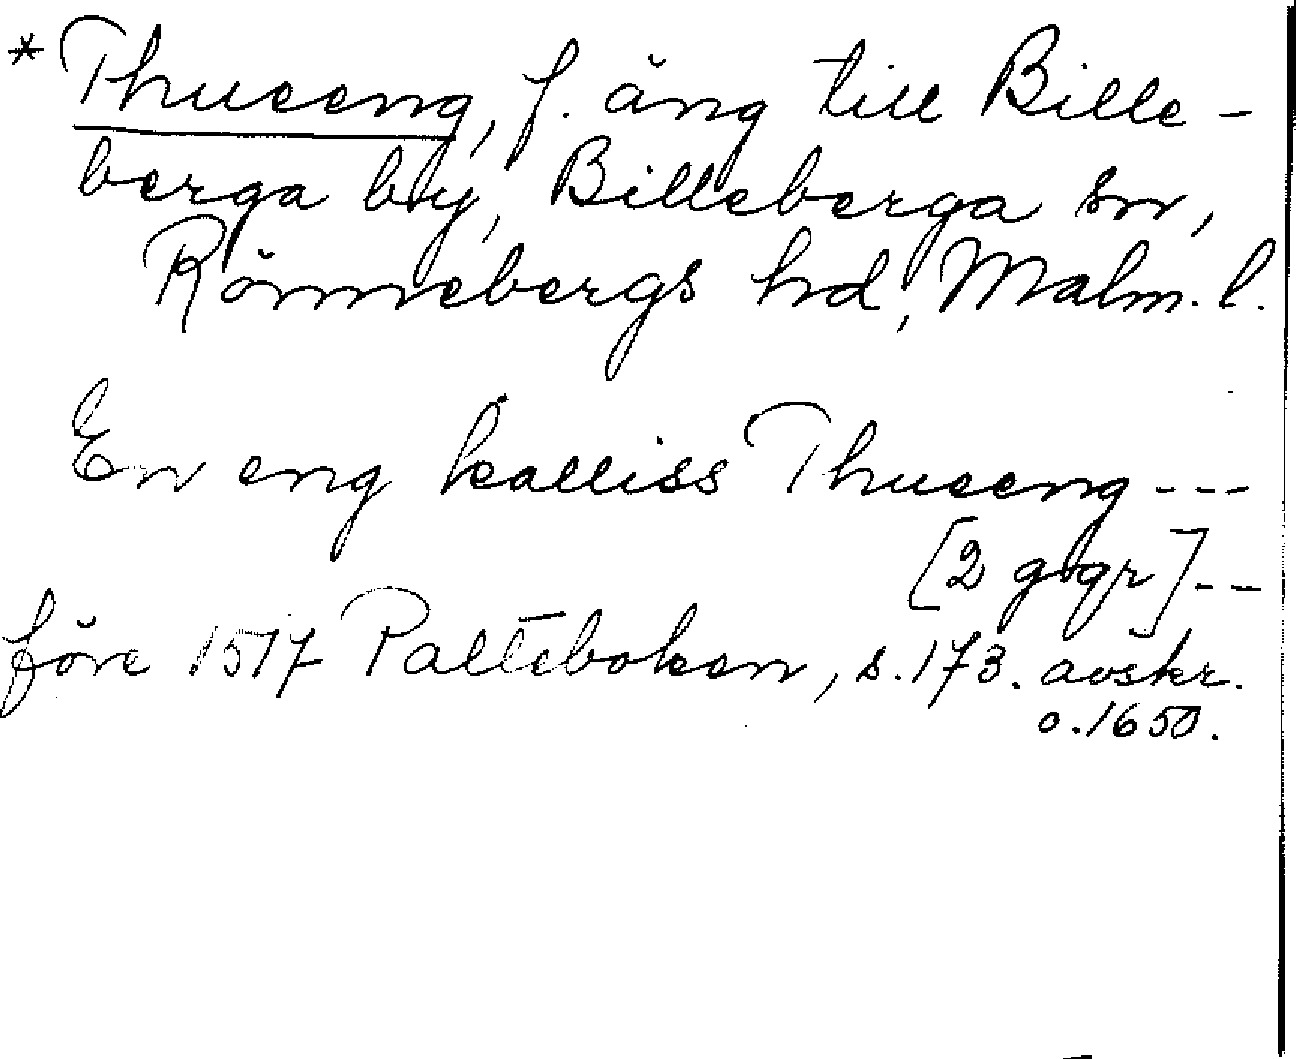 * Thueeng, f. äng till Bille-
berga by, Billeberga sn,
Rönnebergs hd, Malm. l.
En eng kalliss Thueeng ---
[2 ggr] --
före 1517 Palteboken, s. 173. avskr.
o. 1650.